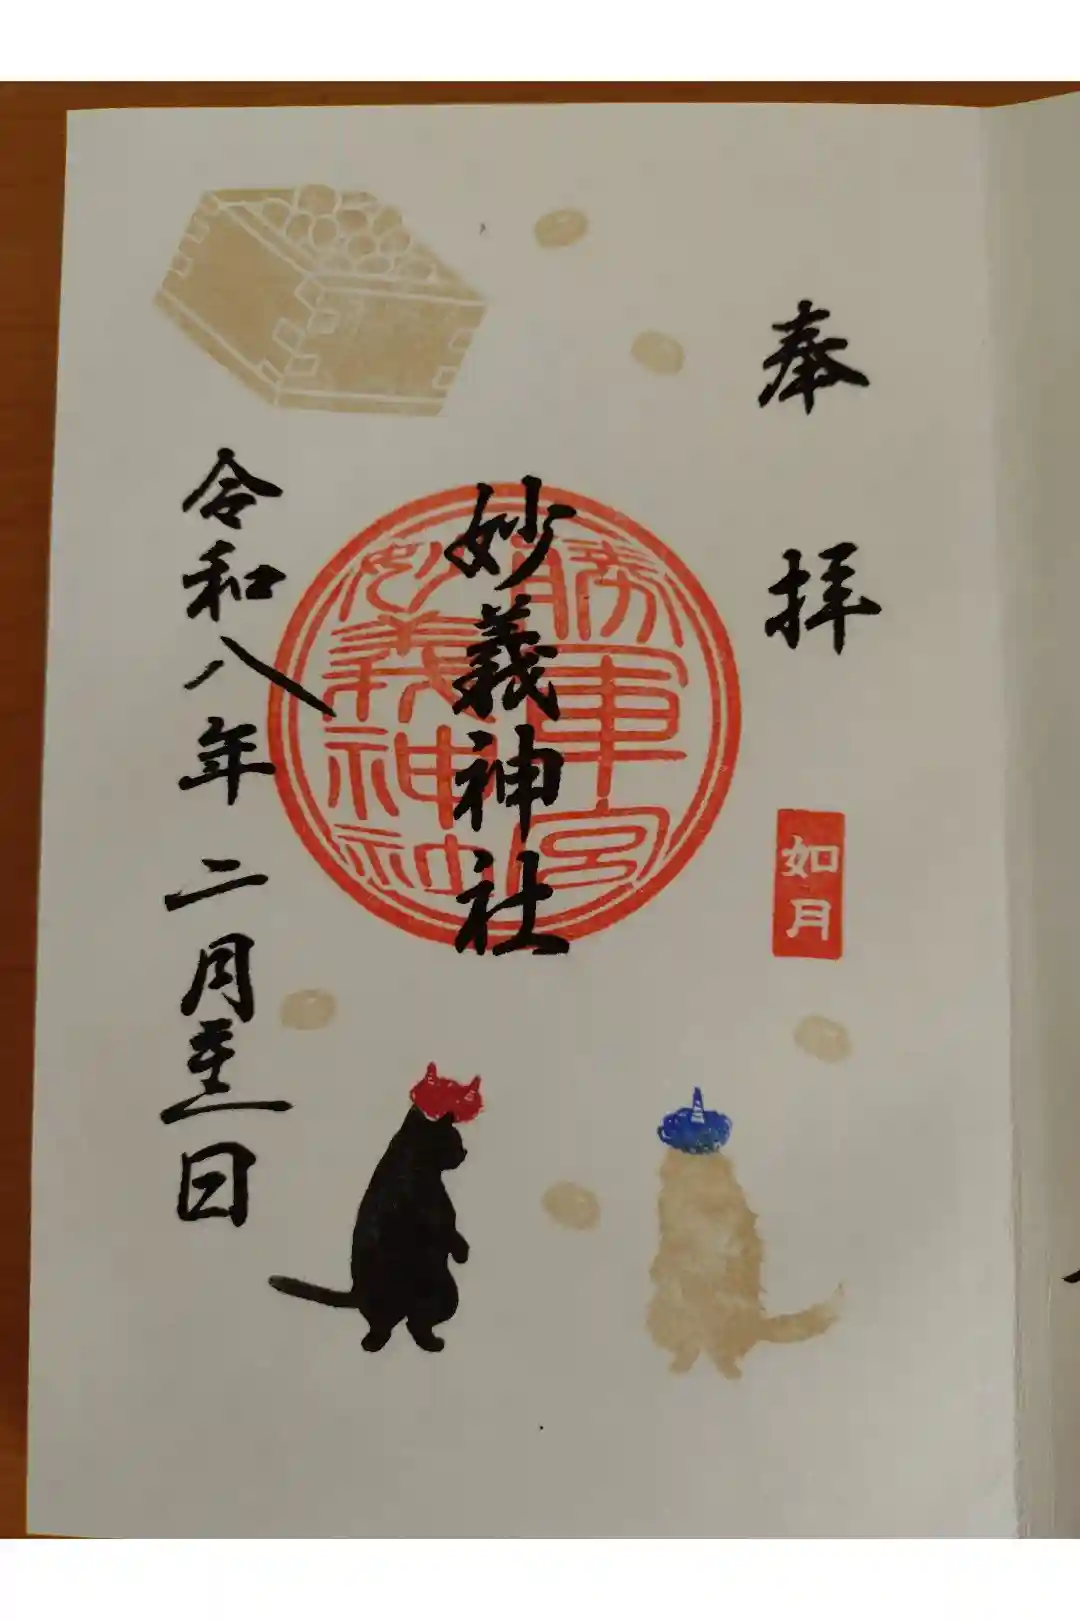 奉拝
如月
妙義神社
勝軍宮
妙義神社
令和八年 二月
日